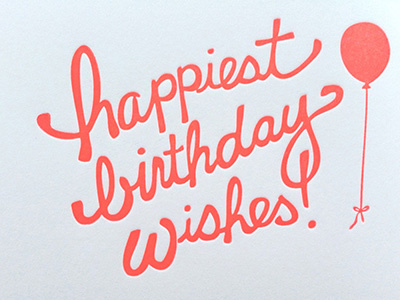 happiest
birthday
wishes!